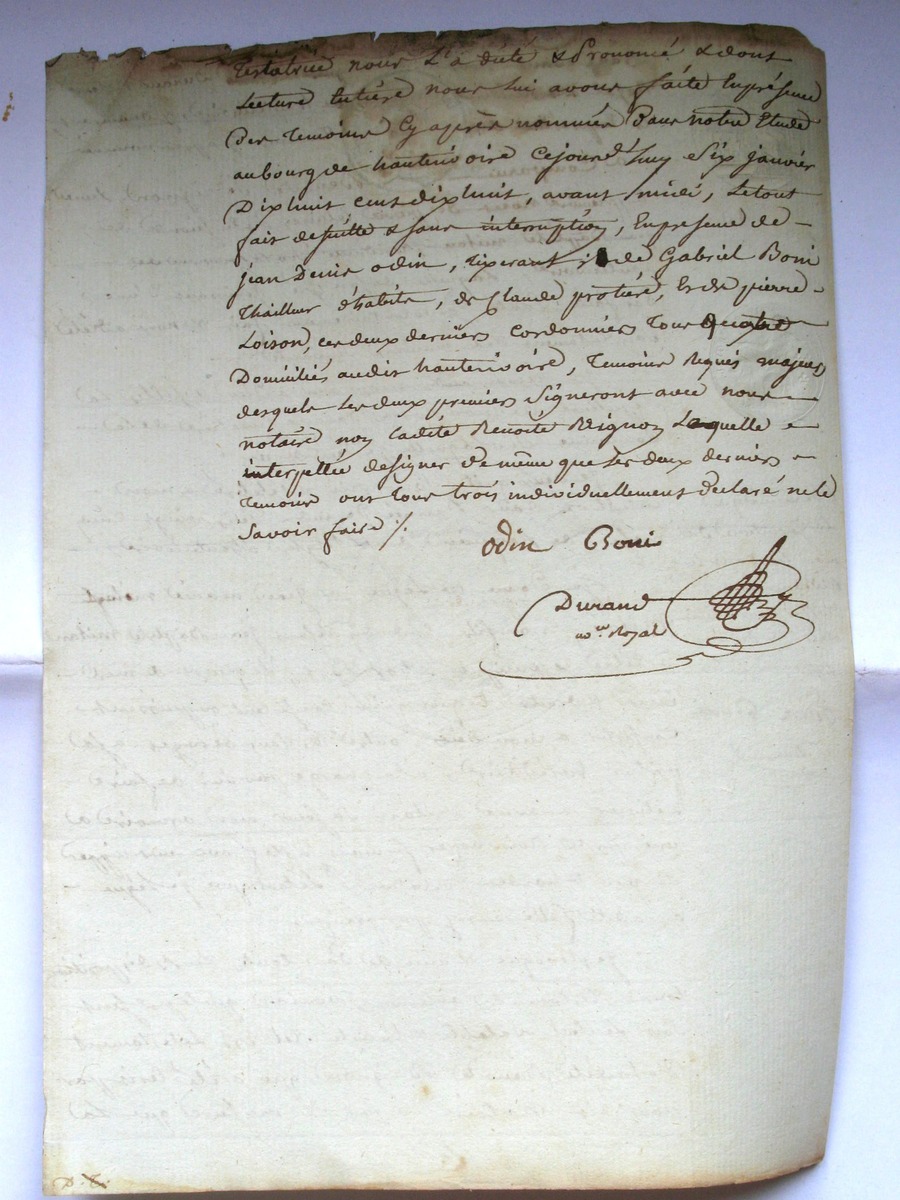 testatrice nous l'a dicté & Prononcé & dont
Lecture Entière nous lui avons faite Enprésence
Des temoins Cy après nommés Dans notre Etude
aubourg de hauterivoire Cejourd'huy Six janvier
Dixhuit cent dixhuit, avant midi, Letout
fait desuitte & sans interruption, Enpresence de -
jean Denis odin, tixerant, de Gabriel Boni
thailleur d'habits, de Claude protière, & de pierre -
Loison, ces deux derniers cordonniers tous quatre
Domiciliés audit hauterivoire, temoins requis majeurs
desquels Les deux premiers Signeront avec nous
notaire non ladite Benoite Laquelle
interpellée designer de même que Les deux derniers
temoins ont tous trois individuellement déclaré nele
Savoir faire ./.
Odin Boni
Durand
no.re Royal